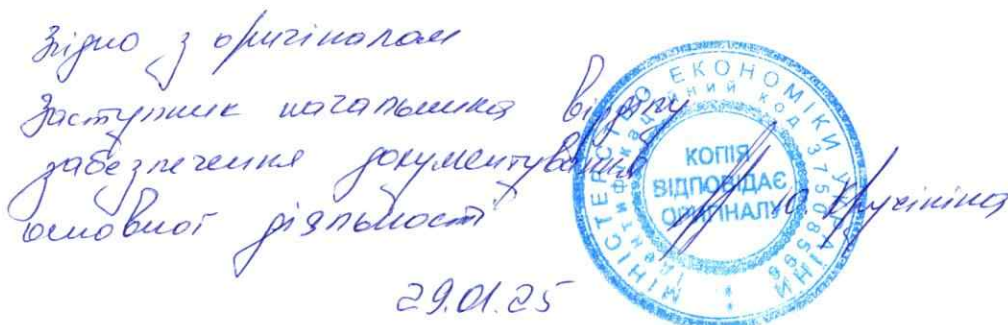 Згідно з оригіналом
Заступник начальника відділу
забезпечення документування
основної діяльності
Ю. Кручініна
29.01.25
МІНІСТЕРСТВО ЕКОНОМІКИ УКРАЇНИ
Ідентифікаційний код 37508596
КОПІЯ
ВІДПОВІДАЄ
ОРИГІНАЛУ